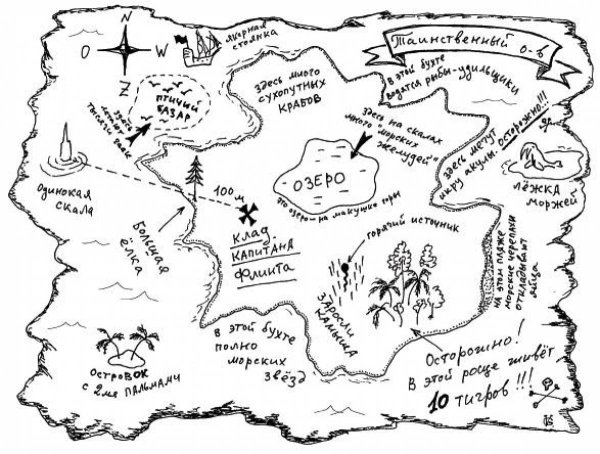 N
O
W
Z
Якорная
стоянка
Таинственный о-в
Здесь много
сухопутных
крабов
В этой бухте
водятся рыбы-удильщики
Птичий
базар
Здесь
летают
тысячи
Здесь на скалах
много "морских
желудей"
Здесь мечут
икру акулы.
Осторожно!!!
Лёжка
моржей
Одинокая
скала
100 м
Озеро
Это озеро - на макушке горы
Большая
ёлка
Клад
капитана
Флинта
Горячий источник
Заросли
камыша
На этом пляже
морские черепахи
откладывают
яйца
Островок
с 2мя пальмами
В этой бухте
полно
морских
звёзд
Осторожно!
В этой роще живёт
10 тигров!!!